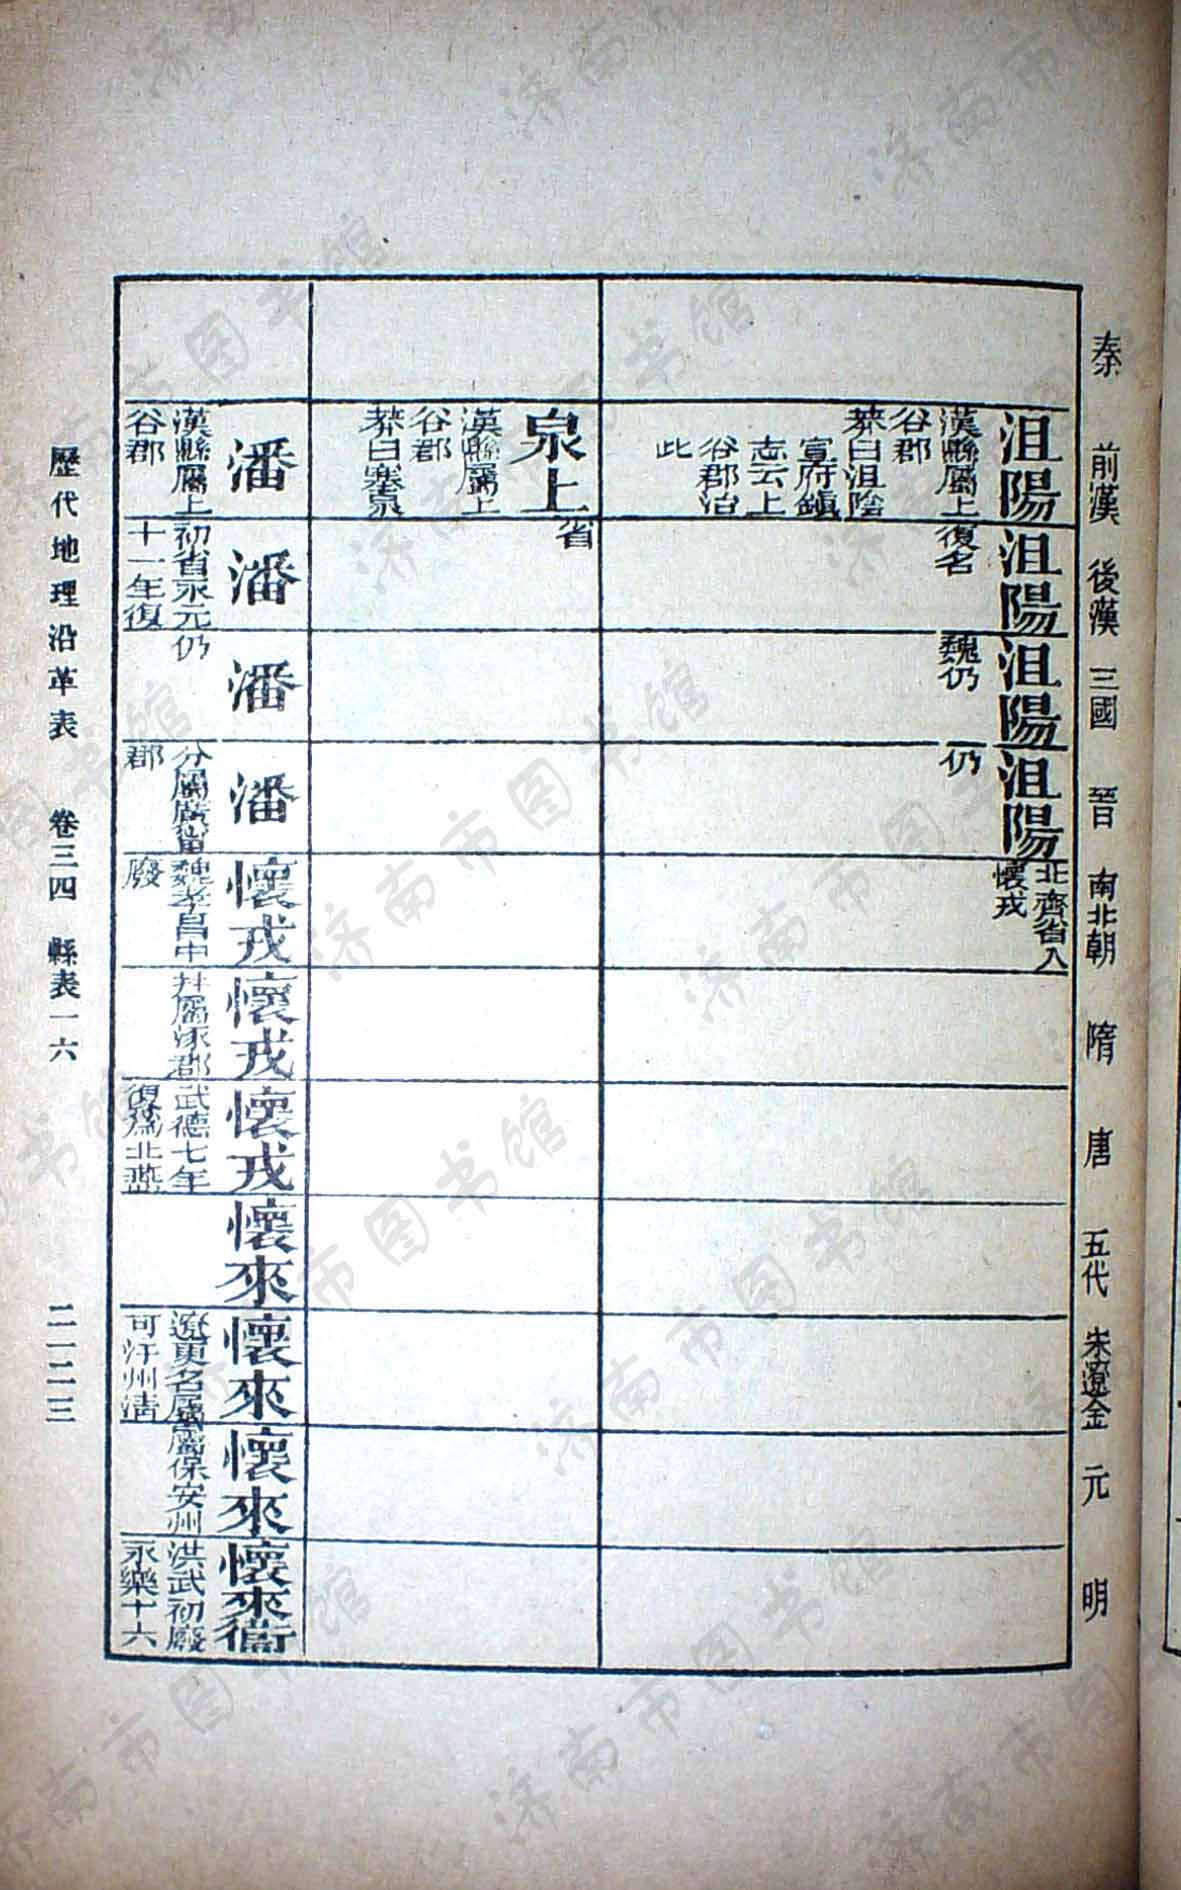 秦
前漢
後漢
三國
晉
南北朝
隋
唐
五代
宋遼金
元
明
沮陽
漢縣屬上
谷郡
莽曰沮陰
宣府鎮
志云上
谷郡治
此
沮陽
復名
沮陽
魏仍
沮陽
仍
北齊省入
懷戎
泉上
漢縣屬上
谷郡
莽曰塞泉
省
潘
漢縣屬上
谷郡
潘
初省永元
十一年復
潘
仍
潘
分屬廣甯
郡
懷戎
魏孝昌中
廢
懷戎
幷屬涿郡
懷戎
武德七年
復為北燕
懷來
懷來
遼更名屬
可汗州清
懷來
屬保安州
懷來衞
洪武初廢
永樂十六
歷代地理沿革表 卷三四 縣表一六 二一二三
济南市图书馆